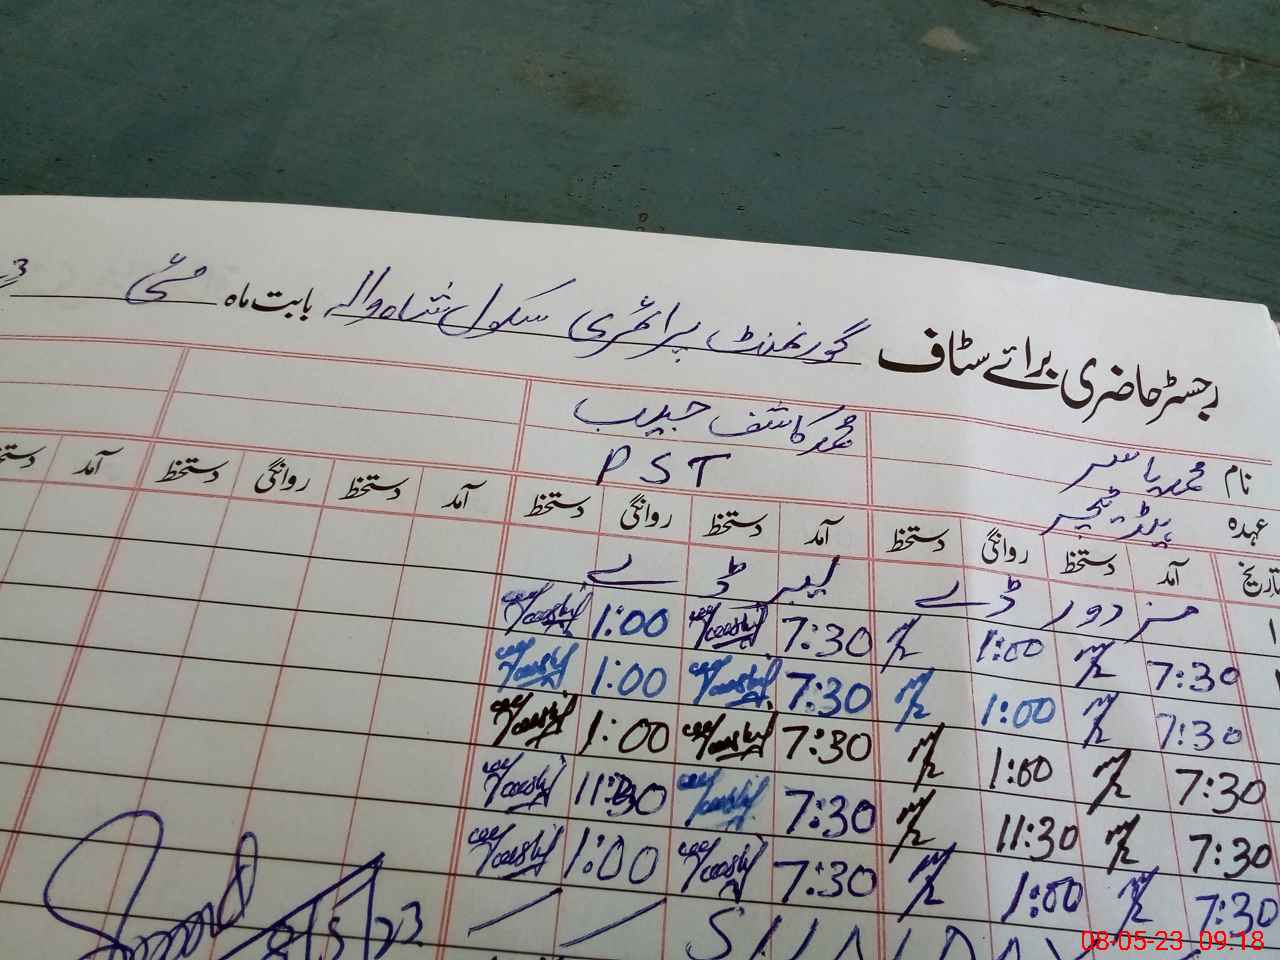 رجسٹر حاضری برائے سٹاف گورنمنٹ پرائمری سکول شاہ والہ بابت ماہ مئی 3
نام محمد یاسر محمد کاشف حبیب
عہدہ ہیڈ ٹیچر PST
تاریخ آمد دستخط روانگی دستخط آمد دستخط روانگی دستخط آمد دستخط روانگی دستخط آمد
مزدور ڈے لیبر ڈے
7:30 1:00 7:30 1:00
7:30 1:00 7:30 1:00
7:30 1:00 7:30 1:00
7:30 11:30 7:30 11:30
7:30 1:00 7:30 1:00
SUNDAY
8/5/23
08-05-23 09:18